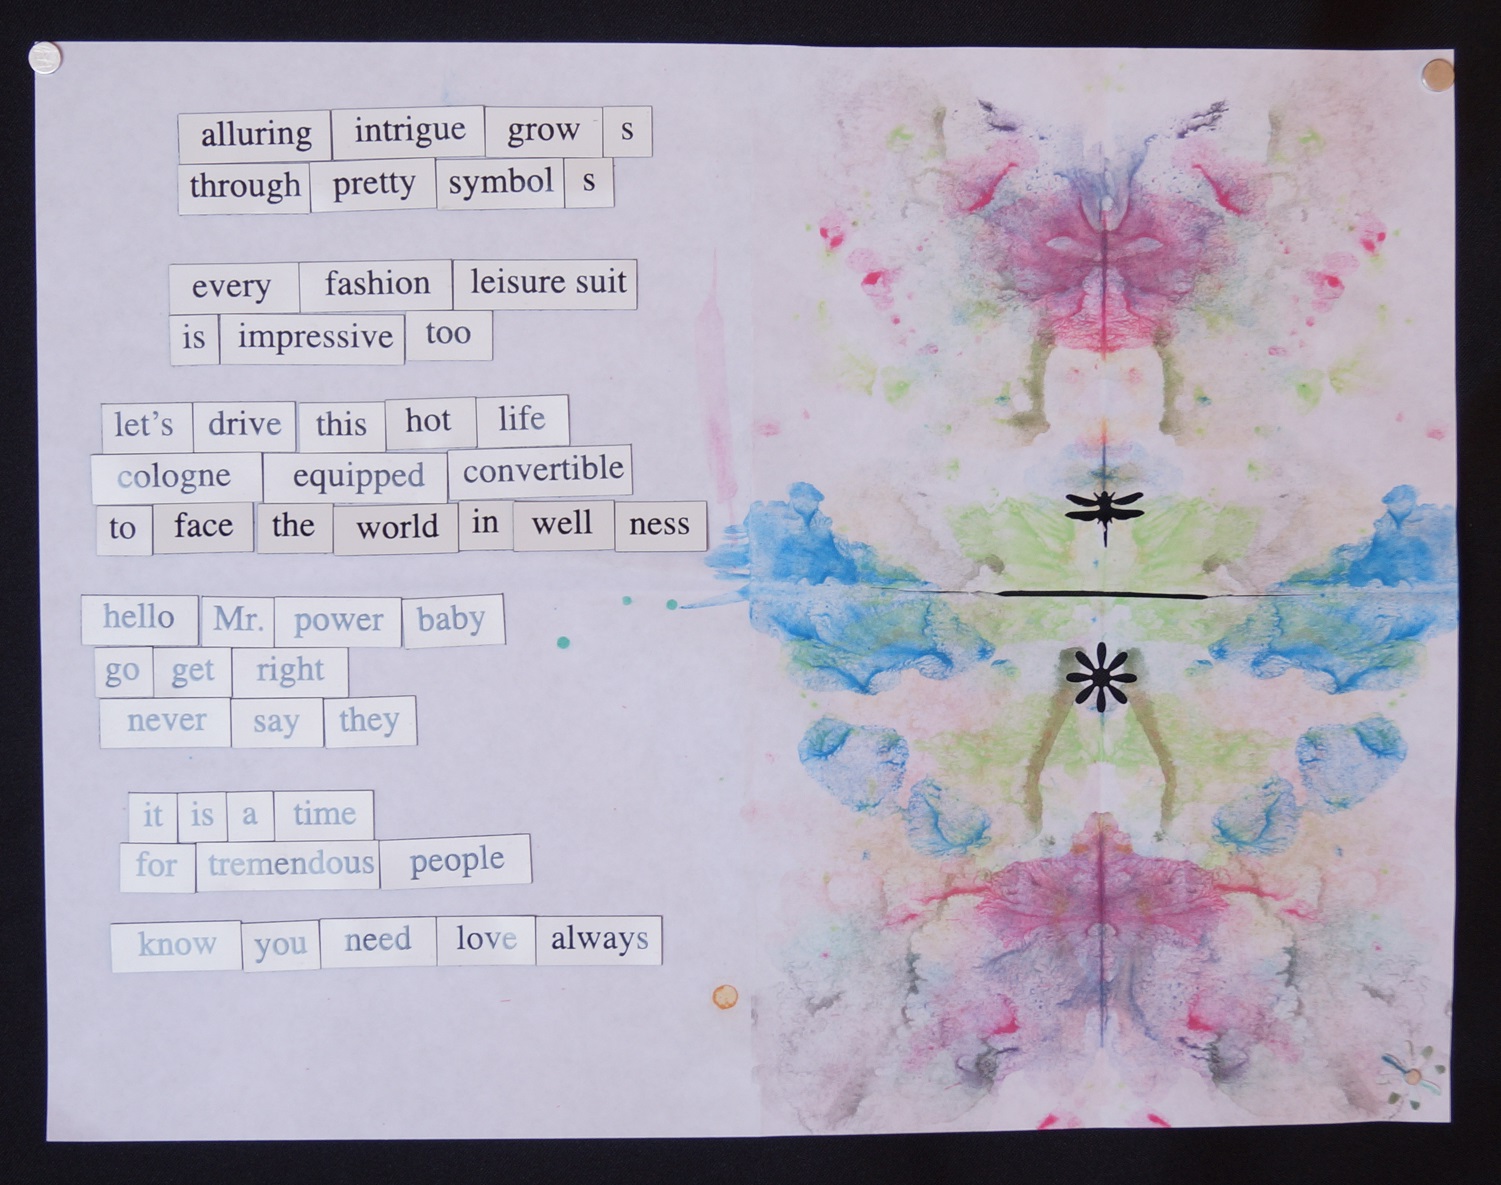 alluring intrigue grow s
through pretty symbol s
every fashion leisure suit
is impressive too
let's drive this hot life
cologne equipped convertible
to face the world in well ness
hello Mr. power baby
go get right
never say they
it is a time
for tremendous people
know you need love always